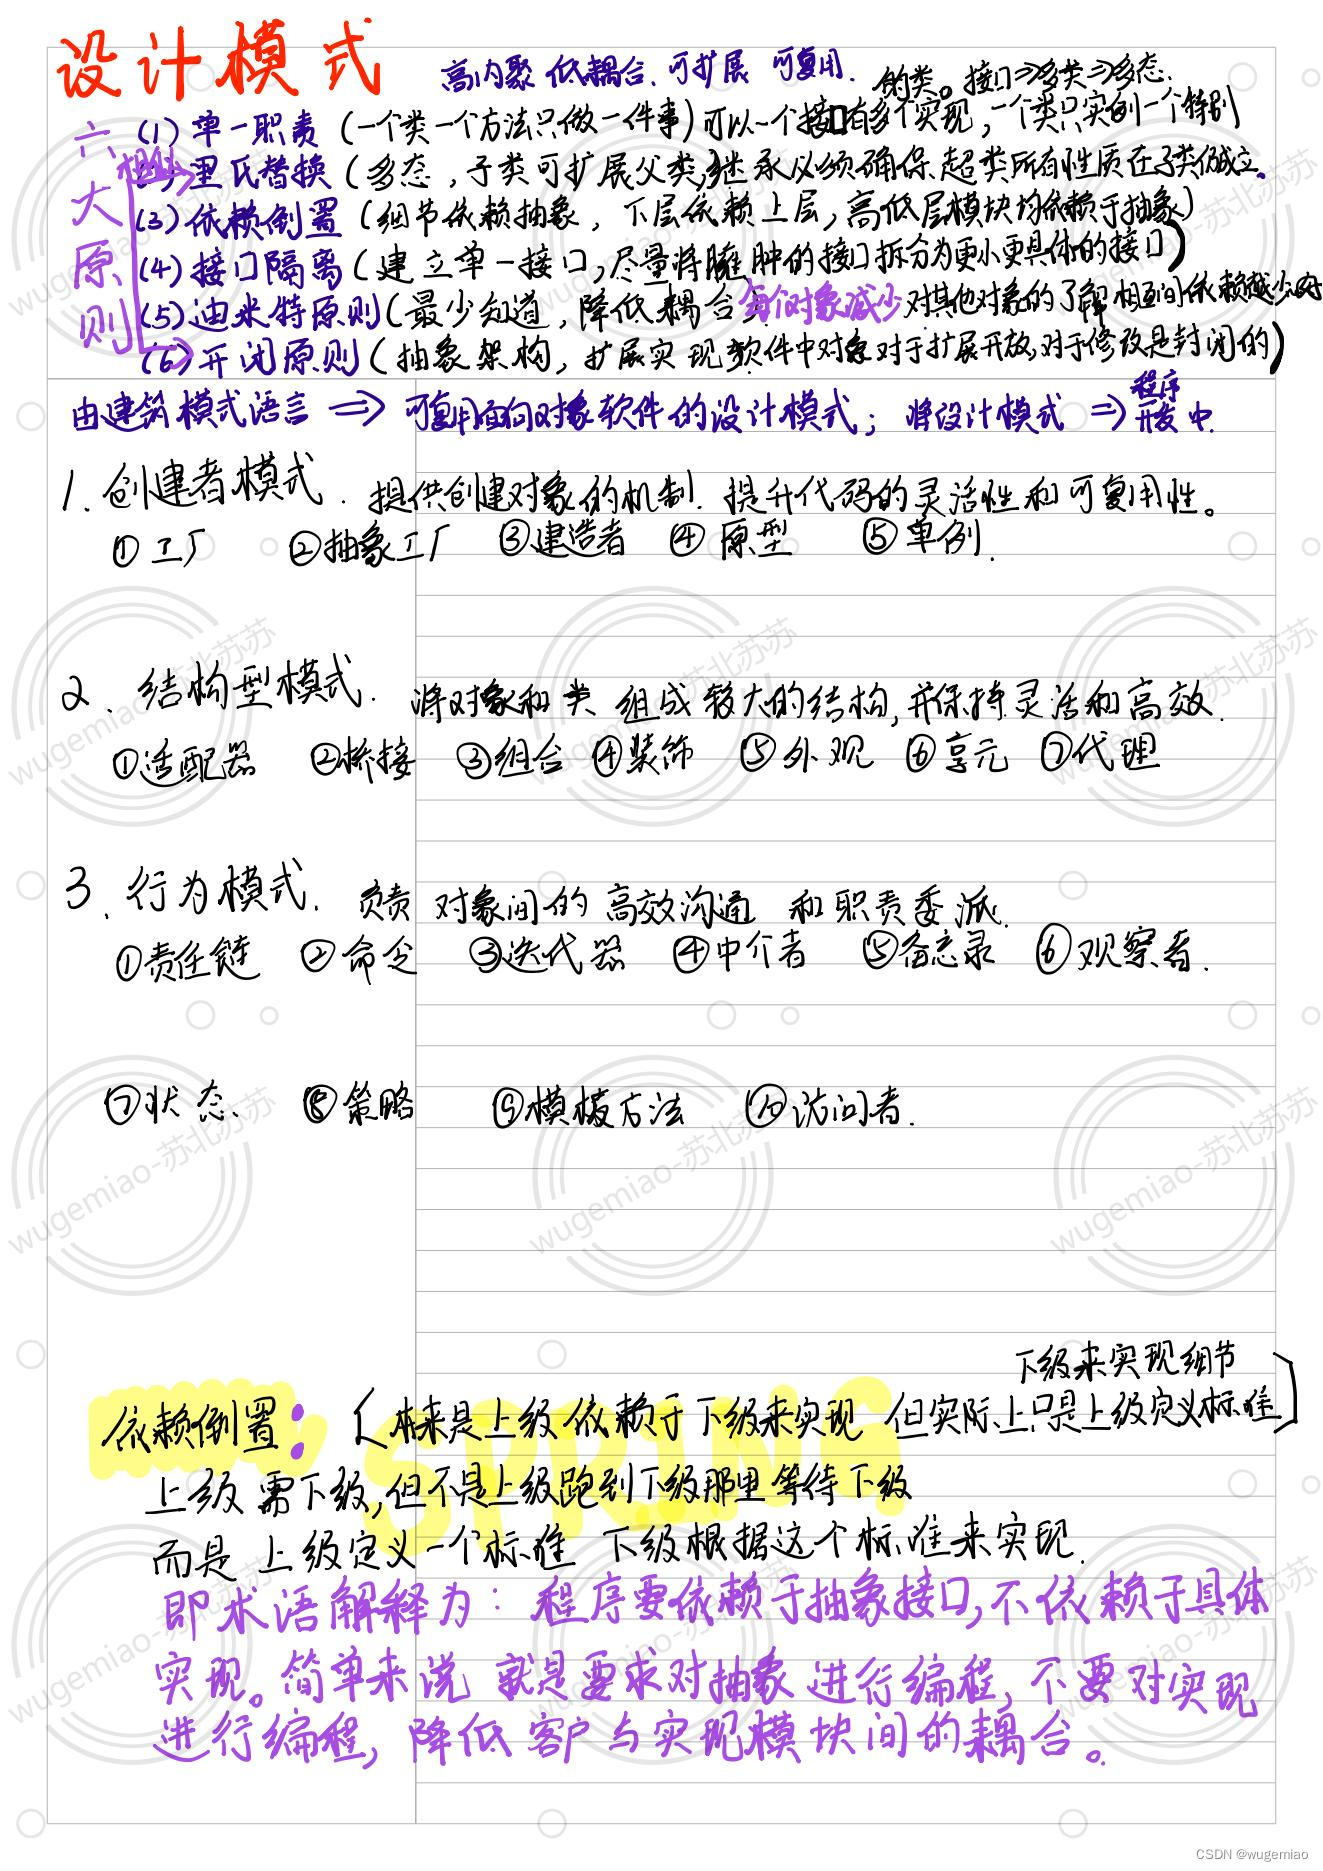 设计模式
高内聚 低耦合、可扩展 可复用.
的类。接口⇒多类⇒多态.
六大原则
(1) 单一职责 (一个类一个方法只做一件事) 可以一个接口有多个实现, 一个类只实例一个特别
里氏替换 (多态, 子类可扩展父类) 继承必须确保超类所有性质在子类仍成立。
(3) 依赖倒置 (细节依赖抽象, 下层依赖上层, 高低层模块均依赖于抽象)
(4) 接口隔离 (建立单一接口, 尽量将臃肿的接口拆分为更小更具体的接口)
(5) 迪米特原则 (最少知道, 降低耦合 每个对象减少对其他对象的了解 相互间依赖减少
(6) 开闭原则 (抽象架构, 扩展实现 软件中对象对于扩展开放, 对于修改是封闭的)
由建筑模式语言 ⇒ 可复用面向对象软件的设计模式; 将设计模式 ⇒ 程序开发中.
1. 创建者模式. 提供创建对象的机制. 提升代码的灵活性和可复用性。
①工厂 ②抽象工厂 ③建造者 ④原型 ⑤单例.
2. 结构型模式. 将对象和类 组成较大的结构, 并保持灵活和高效.
①适配器 ②桥接 ③组合 ④装饰 ⑤外观 ⑥享元 ⑦代理
3. 行为模式. 负责 对象间的 高效沟通 和职责委派.
①责任链 ②命令 ③迭代器 ④中介者 ⑤备忘录 ⑥观察者.
⑦状态、 ⑧策略 ⑨模板方法 ⑩访问者.
下级来实现细节
依赖倒置: (本来是上级依赖于下级来实现 但实际上只是上级定义标准
上级需下级, 但不是上级跑到下级那里等待下级
而是 上级定义一个标准 下级根据这个标准来实现.
即术语解释为: 程序要依赖于抽象接口, 不依赖于具体
实现。简单来说 就是要求对抽象进行编程, 不要对实现
进行编程, 降低客户与实现模块间的耦合。
SPRING
wugemiao-苏北苏苏
CSDN @wugemiao